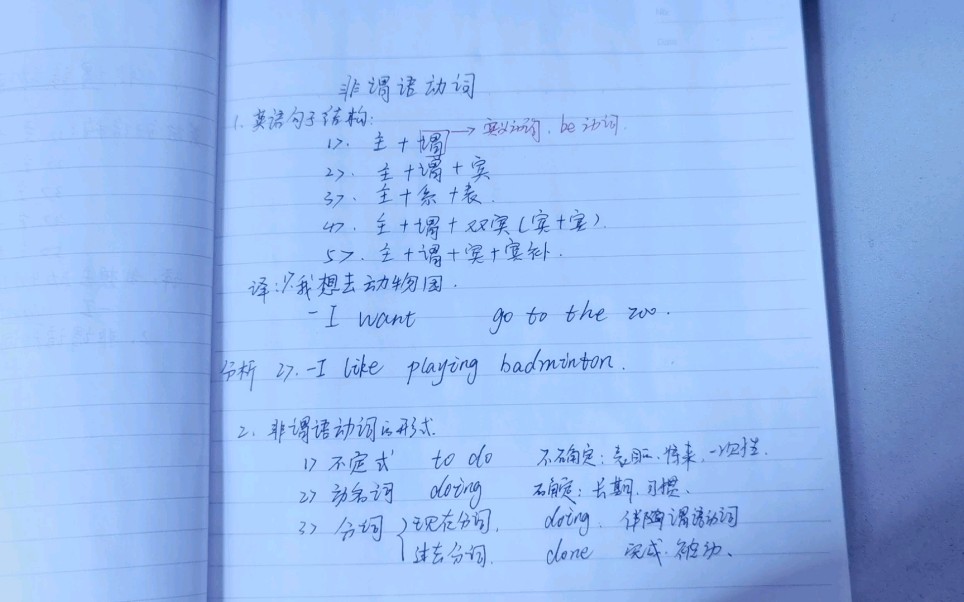 非谓语动词
1. 英语句子结构:
1>. 主+谓 → 实义动词. be动词.
2>. 主+谓+宾
3>. 主+系+表.
4>. 主+谓+双宾(宾+宾).
5>. 主+谓+宾+宾补.
译: 1>.我想去动物园.
- I want go to the zoo.
分析 2>. - I like playing badminton.
2. 非谓语动词的形式.
1> 不定式 to do 不确定: 目的. 将来. 一次性.
2> 动名词 doing 确定: 长期. 习惯.
3> 分词 { 现在分词. doing. 伴随谓语动词
过去分词. done 完成. 被动.